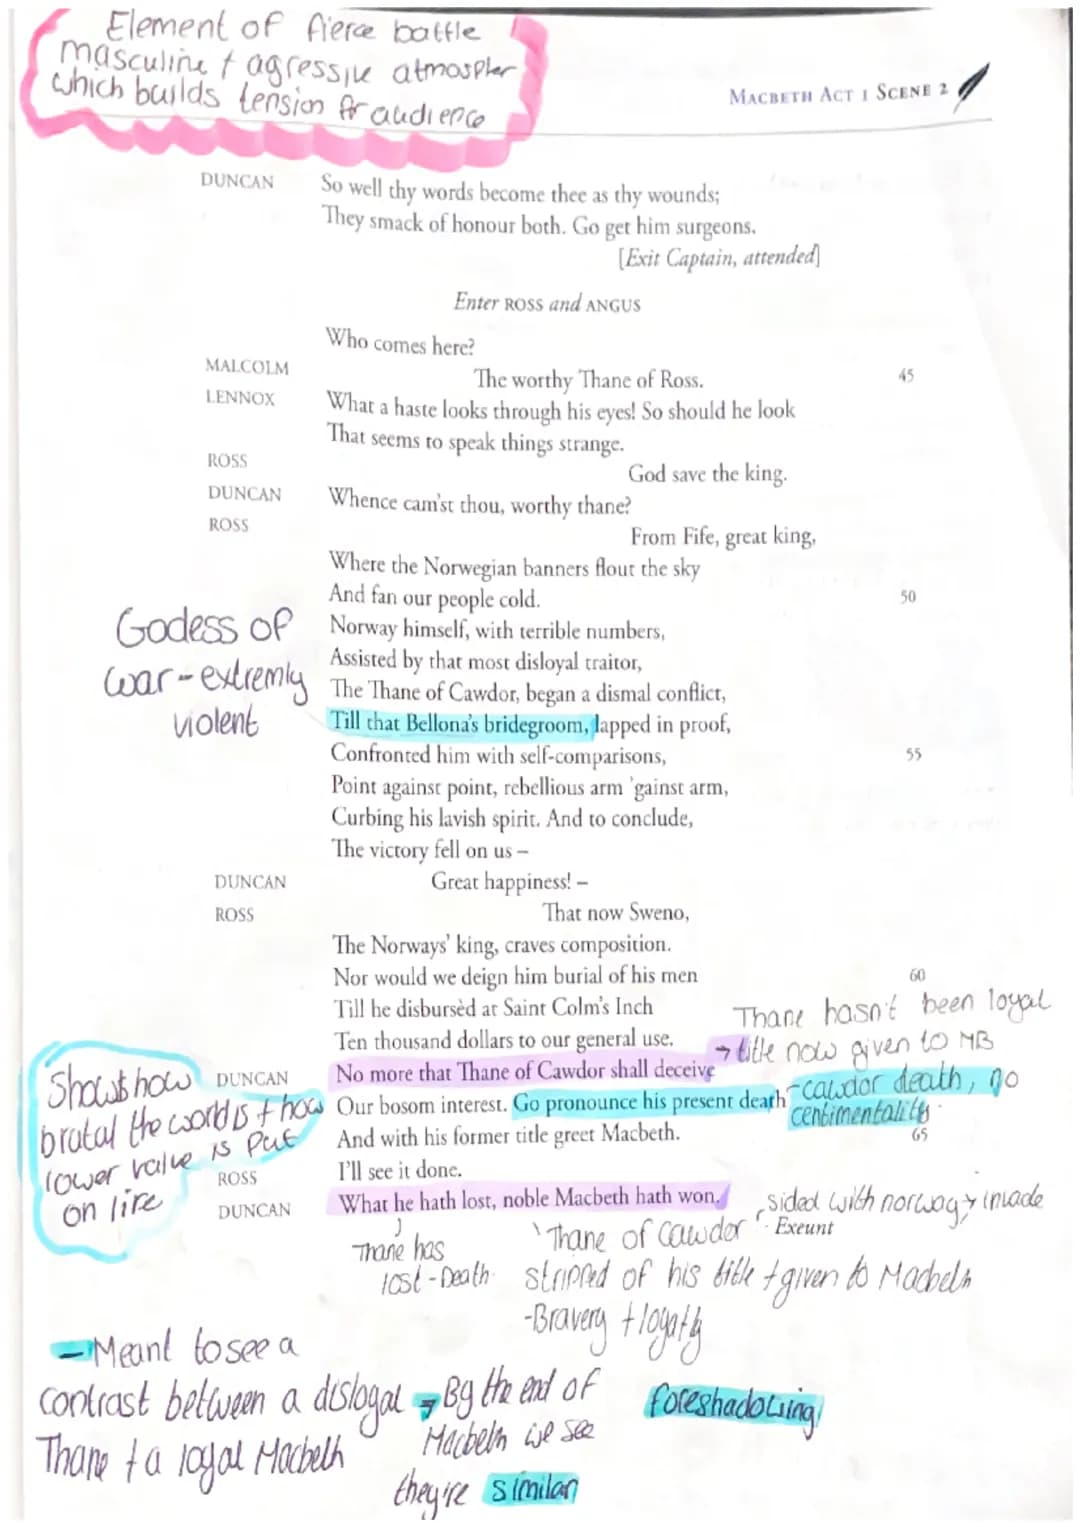 Element of fierce battle
masculine + agressive atmospher
which builds tension for audience
MACBETH ACT 1 SCENE 2
DUNCAN So well thy words become thee as thy wounds;
They smack of honour both. Go get him surgeons.
[Exit Captain, attended]
Enter ROSS and ANGUS
Who comes here?
MALCOLM The worthy Thane of Ross. 45
LENNOX What a haste looks through his eyes! So should he look
That seems to speak things strange.
ROSS God save the king.
DUNCAN Whence cam'st thou, worthy thane?
ROSS From Fife, great king,
Where the Norwegian banners flout the sky
And fan our people cold. 50
Norway himself, with terrible numbers,
Assisted by that most disloyal traitor,
The Thane of Cawdor, began a dismal conflict,
Till that Bellona's bridegroom, lapped in proof,
Confronted him with self-comparisons, 55
Point against point, rebellious arm 'gainst arm,
Curbing his lavish spirit. And to conclude,
The victory fell on us –
Godess of
war - extremly
violent
DUNCAN Great happiness! –
ROSS That now Sweno,
The Norways' king, craves composition.
Nor would we deign him burial of his men 60
Till he disbursèd at Saint Colm's Inch
Ten thousand dollars to our general use.
Thane hasn't been loyal
→ title now given to MB
DUNCAN No more that Thane of Cawdor shall deceive
Our bosom interest. Go pronounce his present death
And with his former title greet Macbeth. 65
- cawdor death, no
centimentality.
ROSS I'll see it done.
DUNCAN What he hath lost, noble Macbeth hath won.
Exeunt
Shows how
brutal the world is + how
lower value is put
on life
Thane has
lost - Death
sided with norway → invade
Thane of Cawdor
stripped of his title + given to Macbeth
- Bravery + loyalty
- Meant to see a
contrast between a disloyal
Thane + a loyal Macbeth
→ By the end of
Macbeth we see
they're similar
foreshadowing